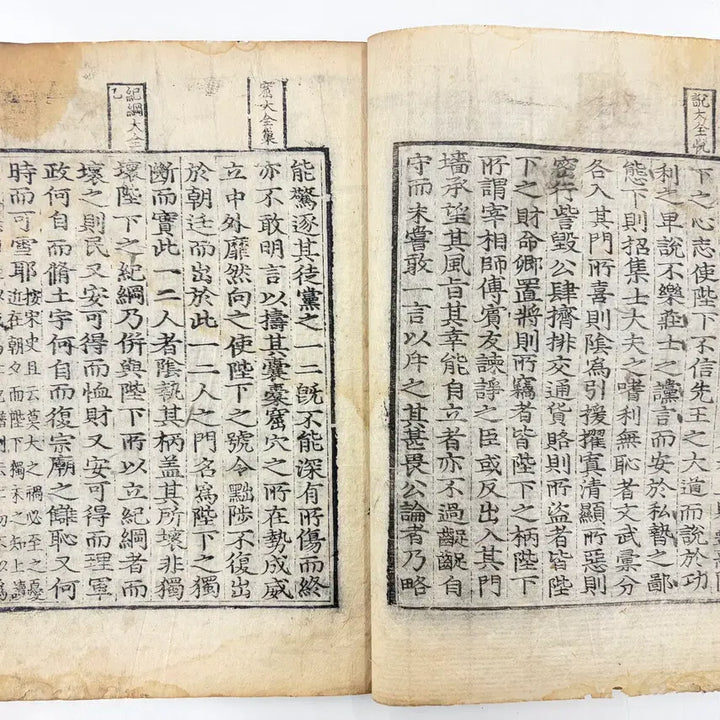 說大全悅
下之心志使陛下不信先王之大道而說於功
利之卑說不樂莊士之讜言而安於私暬之鄙
態下則招集士大夫之嗜利無恥者文武彙分
各入其門所喜則陰爲引援擢寘清顯所惡則
密行訾毀公肆擠排交通貨賂則所盜者皆陛
下之財命卿置將則所竊者皆陛下之柄陛下
所謂宰相師傅賓友諫諍之臣或反出入其門
墻承望其風旨其幸能自立者亦不過齪齪自
守而未嘗敢一言以斥之其甚畏公論者乃略
窟大全集
紀綱大全已
能驚逐其徒黨之一二旣不能深有所傷而終
亦不敢明言以擣其囊橐窟穴之所在勢成威
立中外靡然向之使陛下之號令黜陟不復出
於朝廷而出於此一二人之門名爲陛下之獨
斷而實此一二人者陰執其柄盖其所壞非獨
壞陛下之紀綱乃併與陛下所以立紀綱者而
壞之則民又安可得而恤財又安可得而理軍
政何自而脩土宇何自而復宗廟之讎恥又何
時而可雪耶
按宋史且云莫大之禍必至之憂
近在朝夕而陛下獨未之知上讀